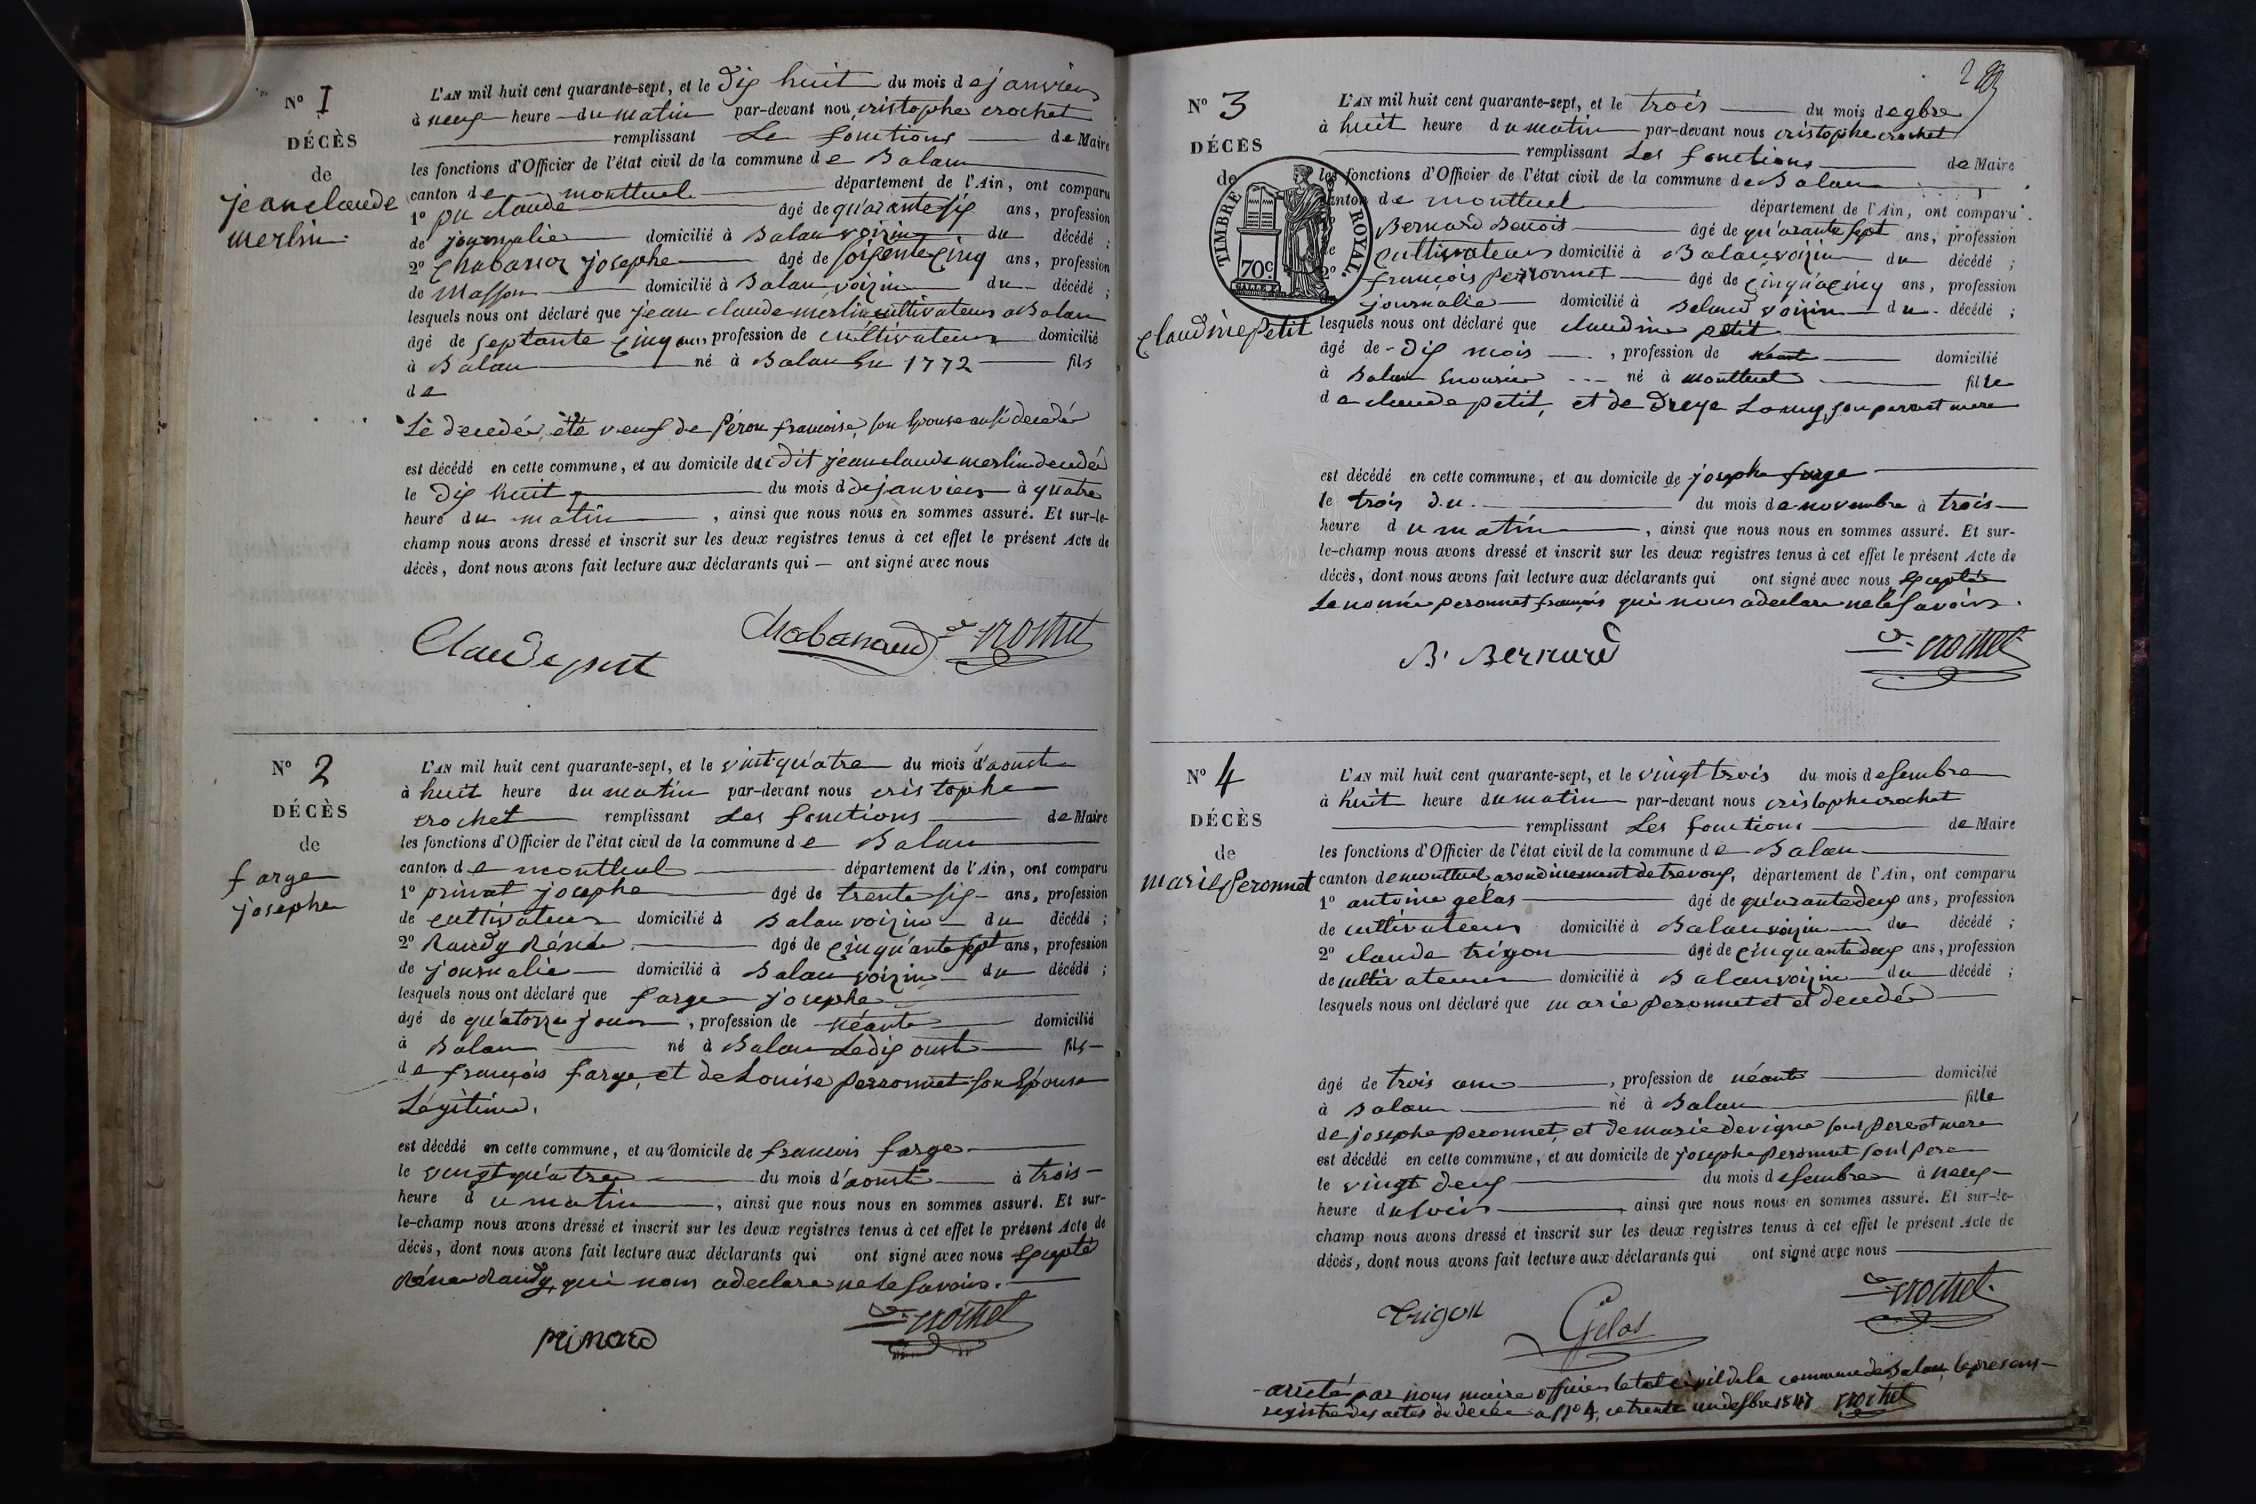 N° 1
DÉCÈS
de
jean claude
merlin.
L'AN mil huit cent quarante-sept, et le dix huit du mois de janvier
à neuf heure du matin par-devant nous cristophe crochet
remplissant Le fonctions de Maire
les fonctions d'Officier de l'état civil de la commune de Balan
canton de montluel département de l'Ain, ont comparu
1° put claude âgé de qu'arante six ans, profession
de journalie domicilié à Balan voizin du décédé ;
2° josephe âgé de soixente cinq ans, profession
de Masson domicilié à Balan voizin du décédé ;
lesquels nous ont déclaré que jean claude merlin cultivateur a Balan
âgé de septante cinq ans profession de cultivateur domicilié
à Balan né à Balan En 1772 fils
de
Le decedé, été veuf de Péron francoise, son Epouse aussi decedé
est décédé en cette commune, et au domicile du dit jean claude merlin decedé
le dix huit du mois d de janvier à quatre
heure du matin , ainsi que nous nous en sommes assuré. Et sur-le-
champ nous avons dressé et inscrit sur les deux registres tenus à cet effet le présent Acte de
décès, dont nous avons fait lecture aux déclarants qui — ont signé avec nous
Claude put Crochet
N° 2
DÉCÈS
de
farge
josephe
L'AN mil huit cent quarante-sept, et le vint qu'atre du mois d'aoust
à huit heure du matin par-devant nous cristophe
crochet remplissant Les fonctions de Maire
les fonctions d'Officier de l'état civil de la commune de Balan
canton de montluel département de l'Ain, ont comparu
1° privat josephe âgé de trente six ans, profession
de cultivateur domicilié à Balan voizin du décédé ;
2° Raudy Réné âgé de cinqu'ante sept ans, profession
de journalie domicilié à Balan voizin du décédé ;
lesquels nous ont déclaré que farge josephe
âgé de qu'atorze jour , profession de néante domicilié
à Balan né à Balan Le dix oust fils
de françois farge, et de Louise perronnet son Epouse
Légitime.
est décédé en cette commune, et au domicile de francois farge
le vingt qu'atre du mois d'aoust à trois
heure du matin , ainsi que nous nous en sommes assuré. Et sur-
le-champ nous avons dressé et inscrit sur les deux registres tenus à cet effet le présent Acte de
décès, dont nous avons fait lecture aux déclarants qui ont signé avec nous Excepté
Réné Raudy, qui nous a declare ne le savoir.
Crochet
N° 3
DÉCÈS
de
Claudine Petit
TIMBRE ROYAL.
70 c.
L'AN mil huit cent quarante-sept, et le trois du mois de 9bre
à huit heure du matin par-devant nous cristophe crochet
remplissant Les fonctions de Maire
les fonctions d'Officier de l'état civil de la commune de Balan
canton de montluel département de l'Ain, ont comparu
Bernard Benoit âgé de qu'arante sept ans, profession
de cultivateur domicilié à Balan voizin du décédé ;
2° françois perronnet âgé de cinq'a cinq ans, profession
journalie domicilié à Baland voizin du décédé ;
lesquels nous ont déclaré que claudine petit
âgé de dix mois , profession de néant domicilié
à Balan né à montluel fille
de claude petit, et de Lamy, son pere et mere
est décédé en cette commune, et au domicile de josephe farge
le trois du du mois de novembre à trois
heure du matin , ainsi que nous nous en sommes assuré. Et sur-
le-champ nous avons dressé et inscrit sur les deux registres tenus à cet effet le présent Acte de
décès, dont nous avons fait lecture aux déclarants qui ont signé avec nous Excepté
Le nomé peronnet françois qui nous a declare ne le savoir.
B. Bernard Crochet
N° 4
DÉCÈS
de
marie Peronnet
L'AN mil huit cent quarante-sept, et le vingt trois du mois desembre
à huit heure du matin par-devant nous cristophe crochet
remplissant Les fonctions de Maire
les fonctions d'Officier de l'état civil de la commune de Balan
canton de montluel arondinement de trevoux, département de l'Ain, ont comparu
1° antoine gelas âgé de qu'arante deux ans, profession
de cultivateur domicilié à Balan voizin du décédé ;
2° claude trigon âgé de cinquante deux ans, profession
de cultivateur domicilié à Balan voizin du décédé ;
lesquels nous ont déclaré que marie peronnet et et decedé
âgé de trois ans , profession de néante domicilié
à Balan né à Balan fille
de josephe peronnet, et de marie devigne sont pere et mere
est décédé en cette commune, et au domicile de josephe peronnet sont pere
le vingt deux du mois desembre à neuf
heure du soir ainsi que nous nous en sommes assuré. Et sur-le-
champ nous avons dressé et inscrit sur les deux registres tenus à cet effet le présent Acte de
décès, dont nous avons fait lecture aux déclarants qui ont signé avec nous
Trigon Gelas Crochet
arreté par nous maire officier letat civil de la commune de Balan, le presens
registre des actes de decée a N° 4, ce trente un desbre 1847 Crochet